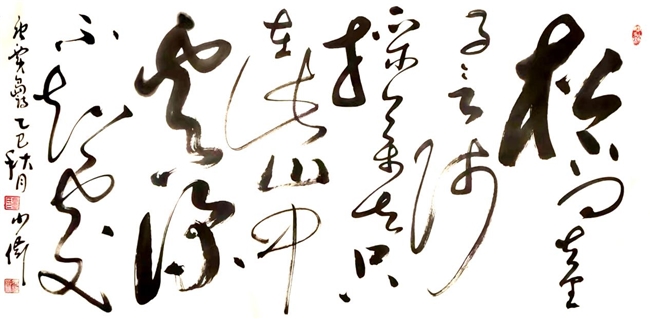 松下问童
子言师
採药去只
在此山中
雲深
不知处
乙巳秋月